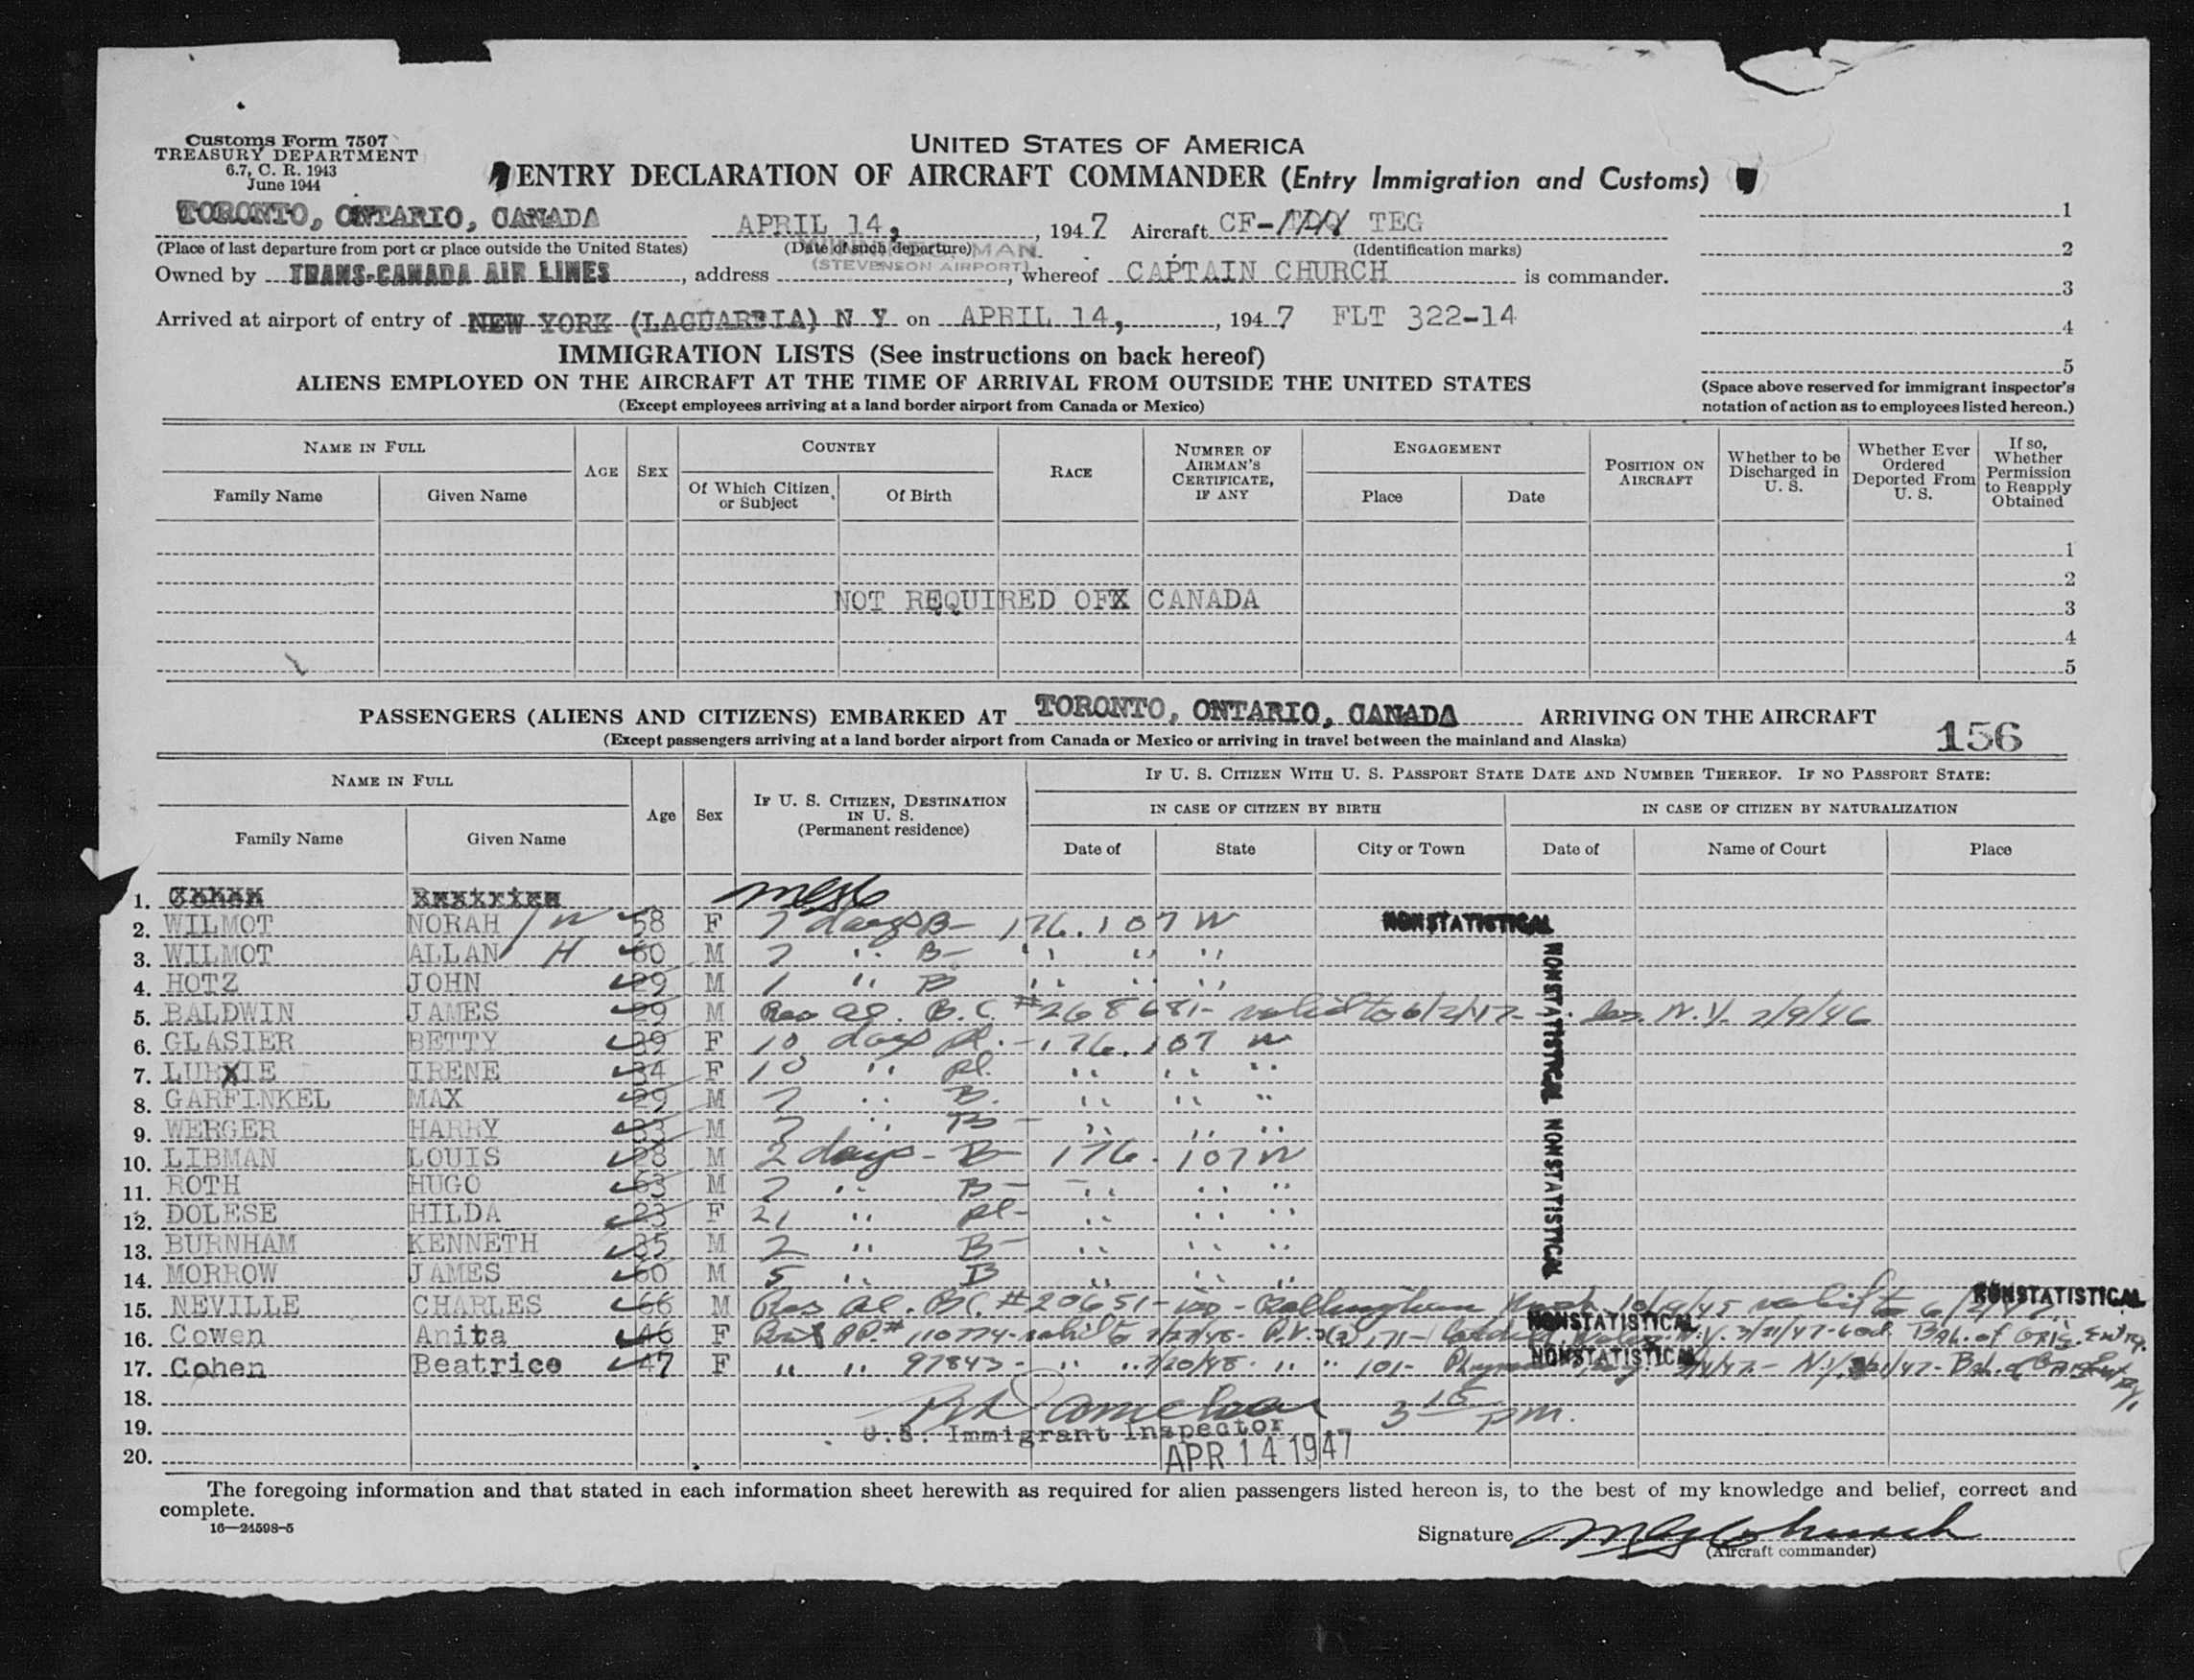 Customs Form 7507
TREASURY DEPARTMENT
6.7, C. R. 1943
June 1944
UNITED STATES OF AMERICA
ENTRY DECLARATION OF AIRCRAFT COMMANDER (Entry Immigration and Customs)
TORONTO, ONTARIO, CANADA APRIL 14, , 1947 Aircraft CF- TEG
(Place of last departure from port or place outside the United States) (Date of such departure) (Identification marks)
(STEVENSON AIRPORT)
Owned by TRANS-CANADA AIR LINES , address , whereof CAPTAIN CHURCH is commander.
Arrived at airport of entry of NEW YORK (LAGUARDIA) N Y on APRIL 14, , 1947 FLT 322-14
1
2
3
4
5
(Space above reserved for immigrant inspector's
notation of action as to employees listed hereon.)
IMMIGRATION LISTS (See instructions on back hereof)
ALIENS EMPLOYED ON THE AIRCRAFT AT THE TIME OF ARRIVAL FROM OUTSIDE THE UNITED STATES
(Except employees arriving at a land border airport from Canada or Mexico)
NAME IN FULL AGE SEX COUNTRY RACE NUMBER OF AIRMAN'S CERTIFICATE, IF ANY ENGAGEMENT POSITION ON AIRCRAFT Whether to be Discharged in U. S. Whether Ever Ordered Deported From U. S. If so, Whether Permission to Reapply Obtained
Family Name Given Name Of Which Citizen or Subject Of Birth Place Date
1
2
NOT REQUIRED OFX CANADA 3
4
5
PASSENGERS (ALIENS AND CITIZENS) EMBARKED AT TORONTO, ONTARIO, CANADA ARRIVING ON THE AIRCRAFT
(Except passengers arriving at a land border airport from Canada or Mexico or arriving in travel between the mainland and Alaska)
156
NAME IN FULL Age Sex IF U. S. CITIZEN, DESTINATION IN U. S. (Permanent residence) IF U. S. CITIZEN WITH U. S. PASSPORT STATE DATE AND NUMBER THEREOF. IF NO PASSPORT STATE:
IN CASE OF CITIZEN BY BIRTH IN CASE OF CITIZEN BY NATURALIZATION
Family Name Given Name Date of State City or Town Date of Name of Court Place
1.
2. WILMOT NORAH / W 58 F 7 days B- 176.107 W NONSTATISTICAL
3. WILMOT ALLAN H 60 M 7 " B- " " "
4. HOTZ JOHN 29 M 1 " B " " "
5. BALDWIN JAMES 29 M Res al. B.C. #268681- valid to 6/2/47- N.Y. 2/9/46
6. GLASIER BETTY 39 F 10 days pl. - 176.107 W
7. LURXIE IRENE 34 F 10 " pl. " " "
8. GARFINKEL MAX 29 M 7 " B. " " "
9. WERGER HARRY 33 M 7 " B- " " "
10. LIBMAN LOUIS 28 M 2 days - B- 176.107W
11. ROTH HUGO 63 M 7 " B- " " "
12. DOLESE HILDA 23 F 21 " pl- " " "
13. BURNHAM KENNETH 35 M 2 " B- " " "
14. MORROW JAMES 60 M 5 " B " " "
NONSTATISTICAL NONSTATISTICAL
15. NEVILLE CHARLES 66 M Res al. B.C. #20651- valid to 6/2/47 NONSTATISTICAL
16. Cowen Anita 46 F PP.# 110774- valid to P.V. 3(2) 171- N.Y. 3/21/47- Bal. of orig. Entry. NONSTATISTICAL
17. Cohen Beatrice 47 F " " 97843- " " 7/20/48- " " 101- Bal. of orig Entry. NONSTATISTICAL
18. 3 15 pm.
19. U.S. Immigrant Inspector
20. APR 14 1947
The foregoing information and that stated in each information sheet herewith as required for alien passengers listed hereon is, to the best of my knowledge and belief, correct and
complete.
16—24598-5
Signature
(Aircraft commander)